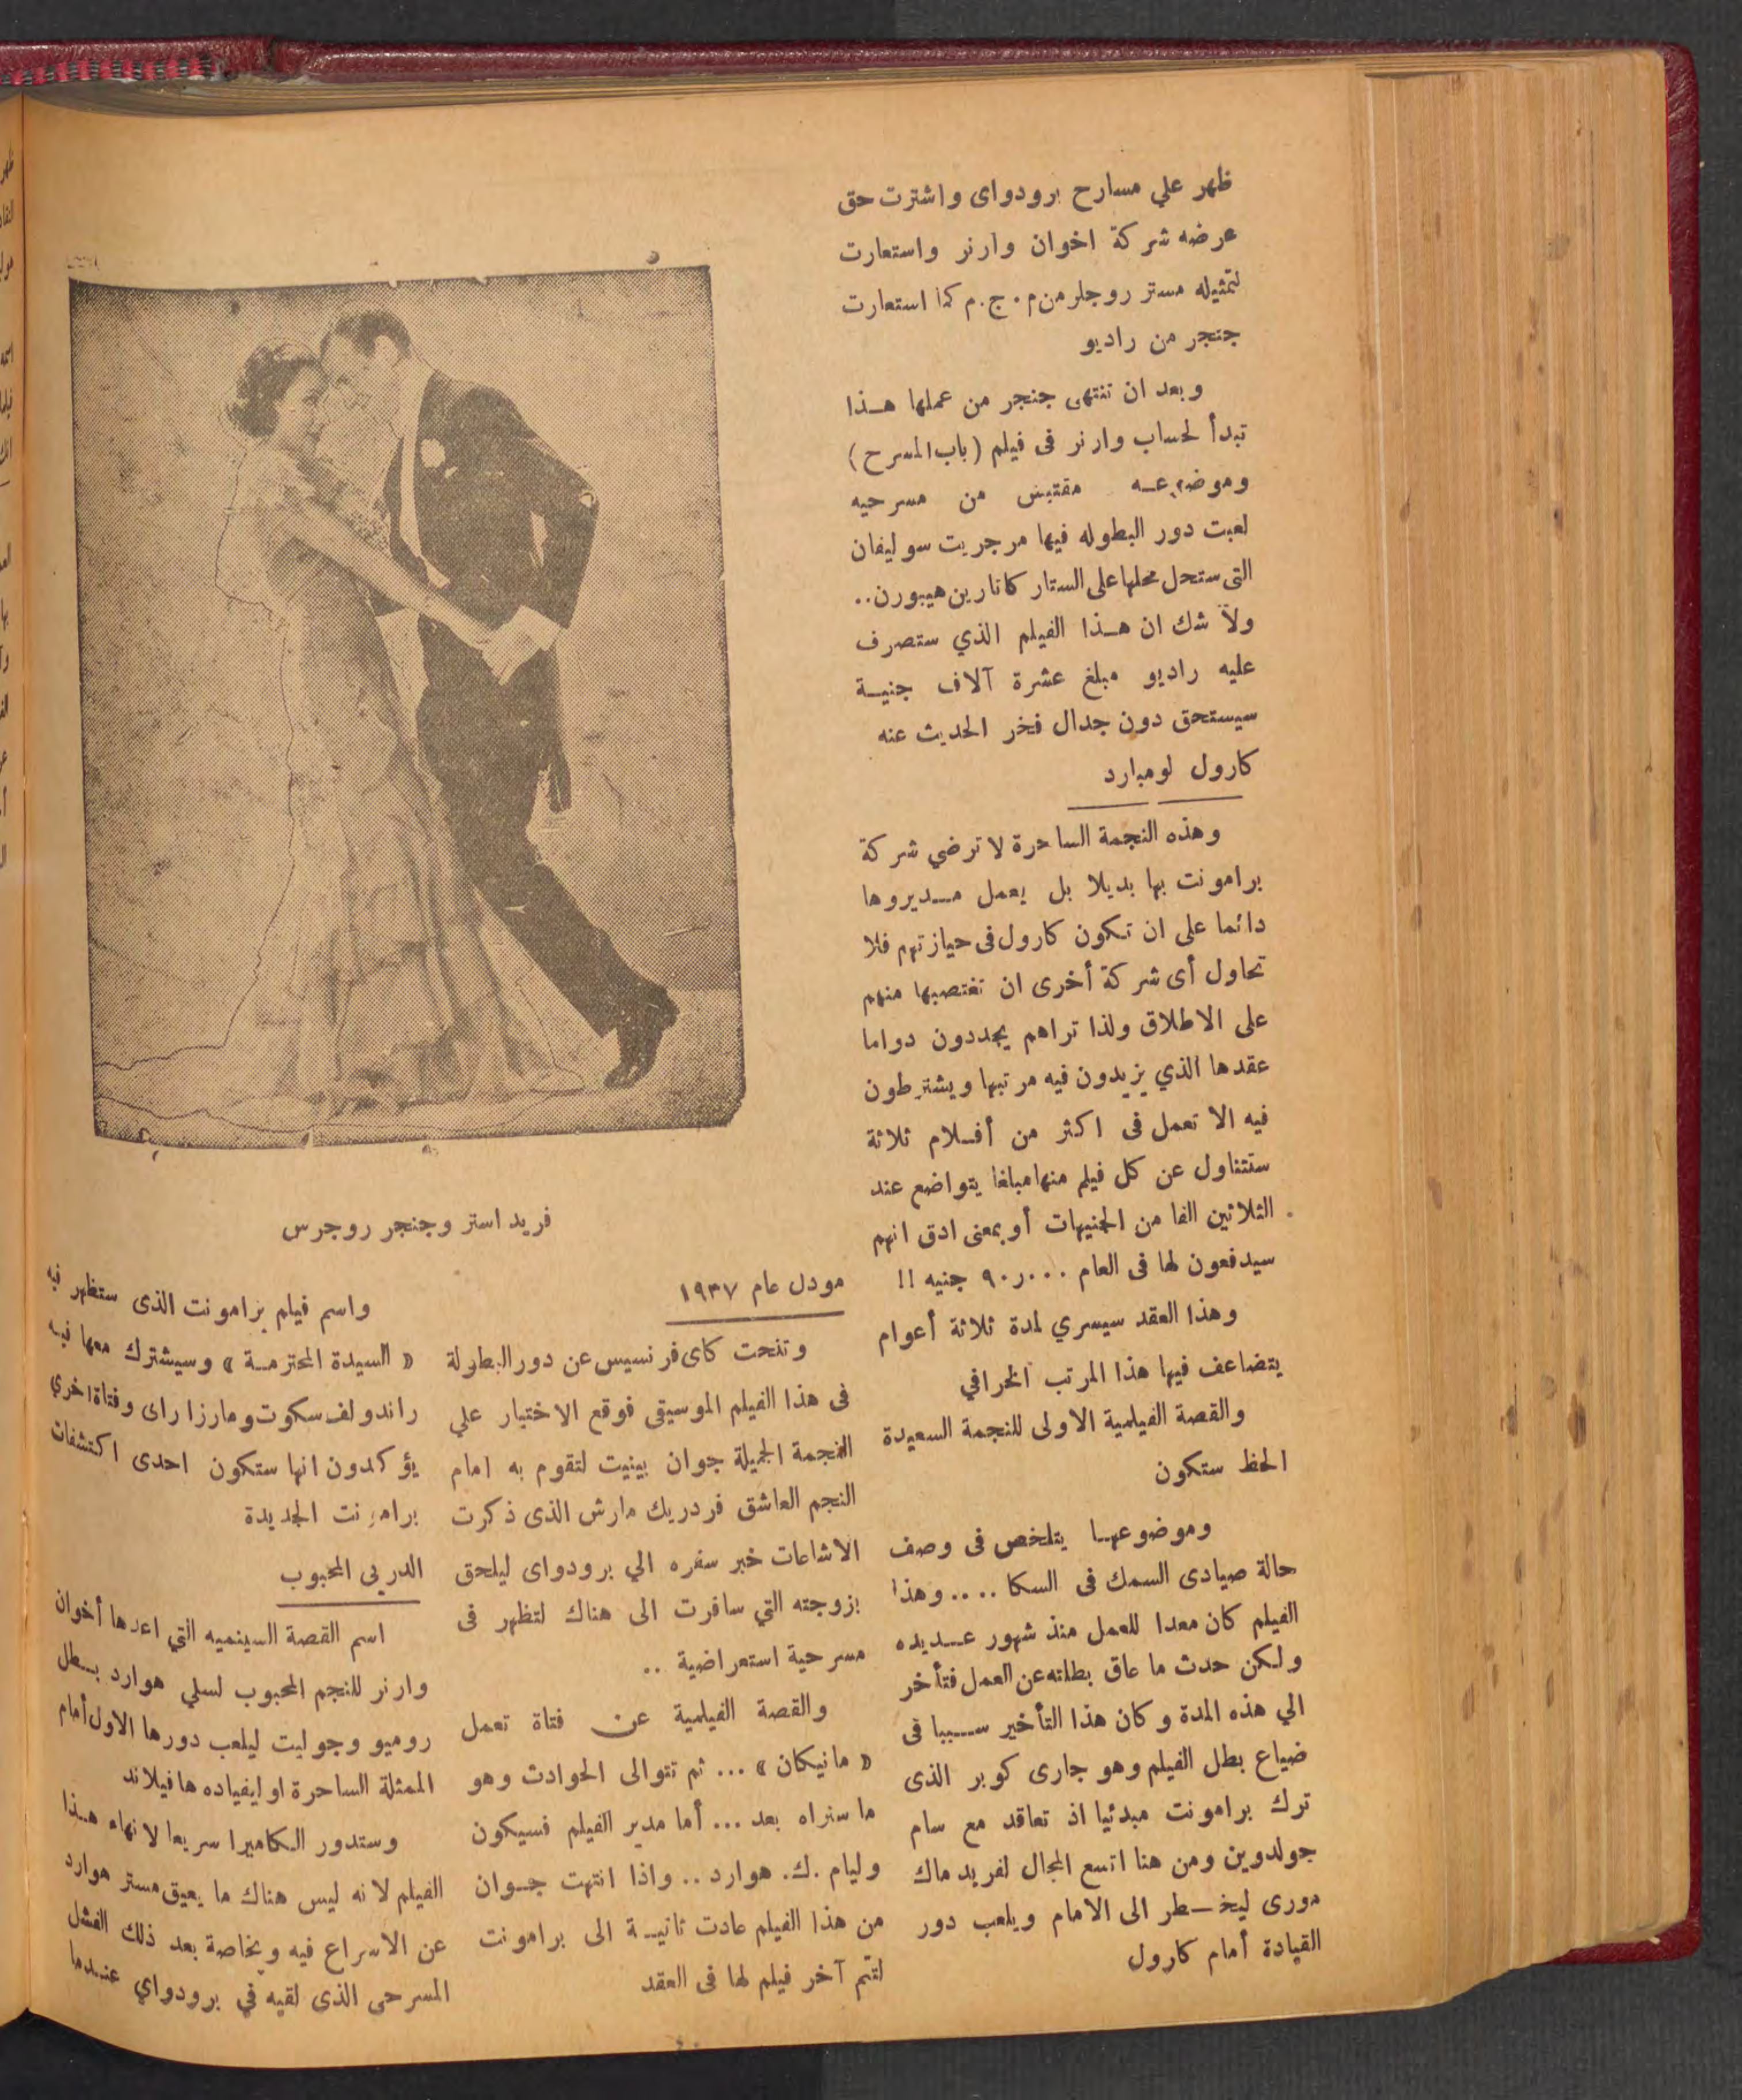 ظهر علي مسارح برودواى واشترت حق
عرضه شركة اخوان وارنر واستعارت
لتمثيله مستر روجلر من م . ج . م كما استعارت
جنجر من راديو
وبعد ان تنتهى جنجر من عملها هـذا
تبدأ لحساب وارنر فى فيلم ( باب المسرح )
وموضوعـه مقتبس من مسرحيه
لعبت دور البطوله فيها مرجريت سوليفان
التى ستحل محلها على الستار كاثارين هيبورن..
ولا شك ان هـذا الفيلم الذي ستصرف
عليه راديو مبلغ عشرة آلاف جنيـة
سيستحق دون جدال فخر الحديث عنه
كارول لومبارد
وهذه النجمة الساحرة لا ترضي شركة
برامونت بها بديلا بل يعمل مـديروها
دائما على ان تكون كارول فى حيازتهم فلا
تحاول أى شركة أخرى ان تغتصبها منهم
على الاطلاق ولذا تراهم يجددون دواما
عقدها الذي يزيدون فيه مرتبها ويشترطون
فيه الا تعمل فى اكثر من أفـلام ثلاثة
ستتناول عن كل فيلم منها مبلغا يتواضع عند
الثلاثين الفا من الجنيهات أو بمعنى ادق انهم
سيدفعون لها فى العام ٩٠٫٠٠٠ جنيه !!
وهذا العقد سيسري لمدة ثلاثة أعوام
يتضاعف فيها هذا المرتب الخرافي
والقصة الفيلمية الاولى للنجمة السعيدة
الحظ ستكون
وموضوعهـا يتلخص فى وصف
حالة صيادى السمك فى السكا .... وهذا
الفيلم كان معدا للعمل منذ شهور عـديده
ولكن حدث ما عاق بطلته عن العمل فتأخر
الي هذه المدة وكان هذا التأخير سـببا فى
ضياع بطل الفيلم وهو جارى كوبر الذى
ترك برامونت مبدئيا اذ تعاقد مع سام
جولدوين ومن هنا اتسع المجال لفريد ماك
مورى ليخـطر الى الامام ويلعب دور
القيادة أمام كارول
فريد استر وجنجر روجرس
مودل عام ١٩٣٧
وتنحت كاى فرنسيس عن دور البطولة
فى هذا الفيلم الموسيقى فوقع الاختيار علي
النجمة الجميلة جوان بينيت لتقوم به امام
النجم العاشق فردريك مارش الذى ذكرت
الاشاعات خبر سفره الي برودواى ليلحق
بزوجته التي سافرت الى هناك لتظهر فى
مسرحية استعراضية ..
والقصة الفيلمية عن فتاة تعمل
« مانيكان » ... ثم تتوالى الحوادث وهو
ما سنراه بعد ... أما مدير الفيلم فسيكون
وليام .ك. هوارد .. واذا انتهت جـوان
من هذا الفيلم عادت ثانيـة الى برامونت
لتتم آخر فيلم لها فى العقد
واسم فيلم برامونت الذى ستظهر فيه
« السيدة المحترمـة » وسيشترك معها فيه
راندولف سكوت ومارزا راى وفتاة اخري
يؤكدون انها ستكون احدى اكتشفات
برامونت الجديدة
الدربى المحبوب
اسم القصة السينميه التي اعدها أخوان
وارنر للنجم المحبوب لسلي هوارد بـطل
روميو وجوليت ليلعب دورها الاول أمام
الممثلة الساحرة اوايفياده هافيلاند
وستدور الكاميرا سريعا لانهاء هـذا
الفيلم لانه ليس هناك ما يعيق مستر هوارد
عن الاسراع فيه وبخاصة بعد ذلك الفشل
المسرحى الذى لقيه في برودواي عنـدما